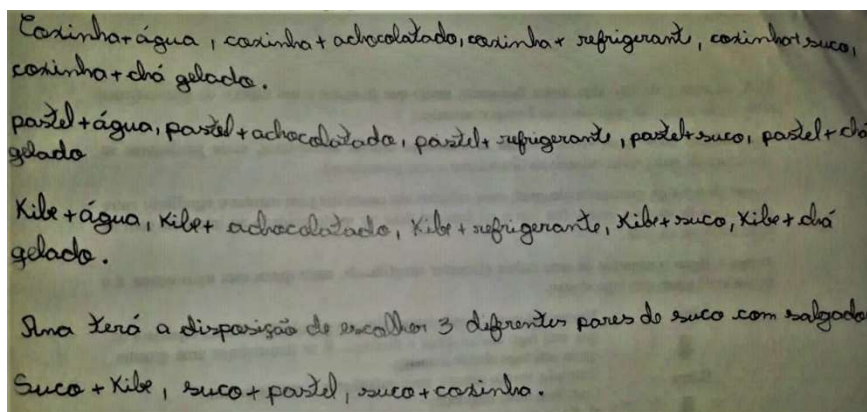 Coxinha+água, coxinha+achocolatado, coxinha+ refrigerant, coxinha+suco,
coxinha+chá gelado.
pastel+água, pastel+achocolatado, pastel+ refrigerante, pastel+suco, pastel+chá
gelado
Kibe+água, Kibe+ achocolatado, Kibe+refrigerante, Kibe+suco, Kibe+chá
gelado.
Ana terá a disposição de escolher 3 diferentes pares de suco com salgado
Suco+Kibe, suco+pastel, suco+coxinha.